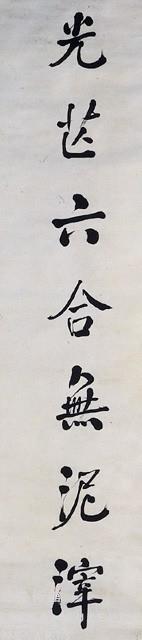 光芒六合無泥滓